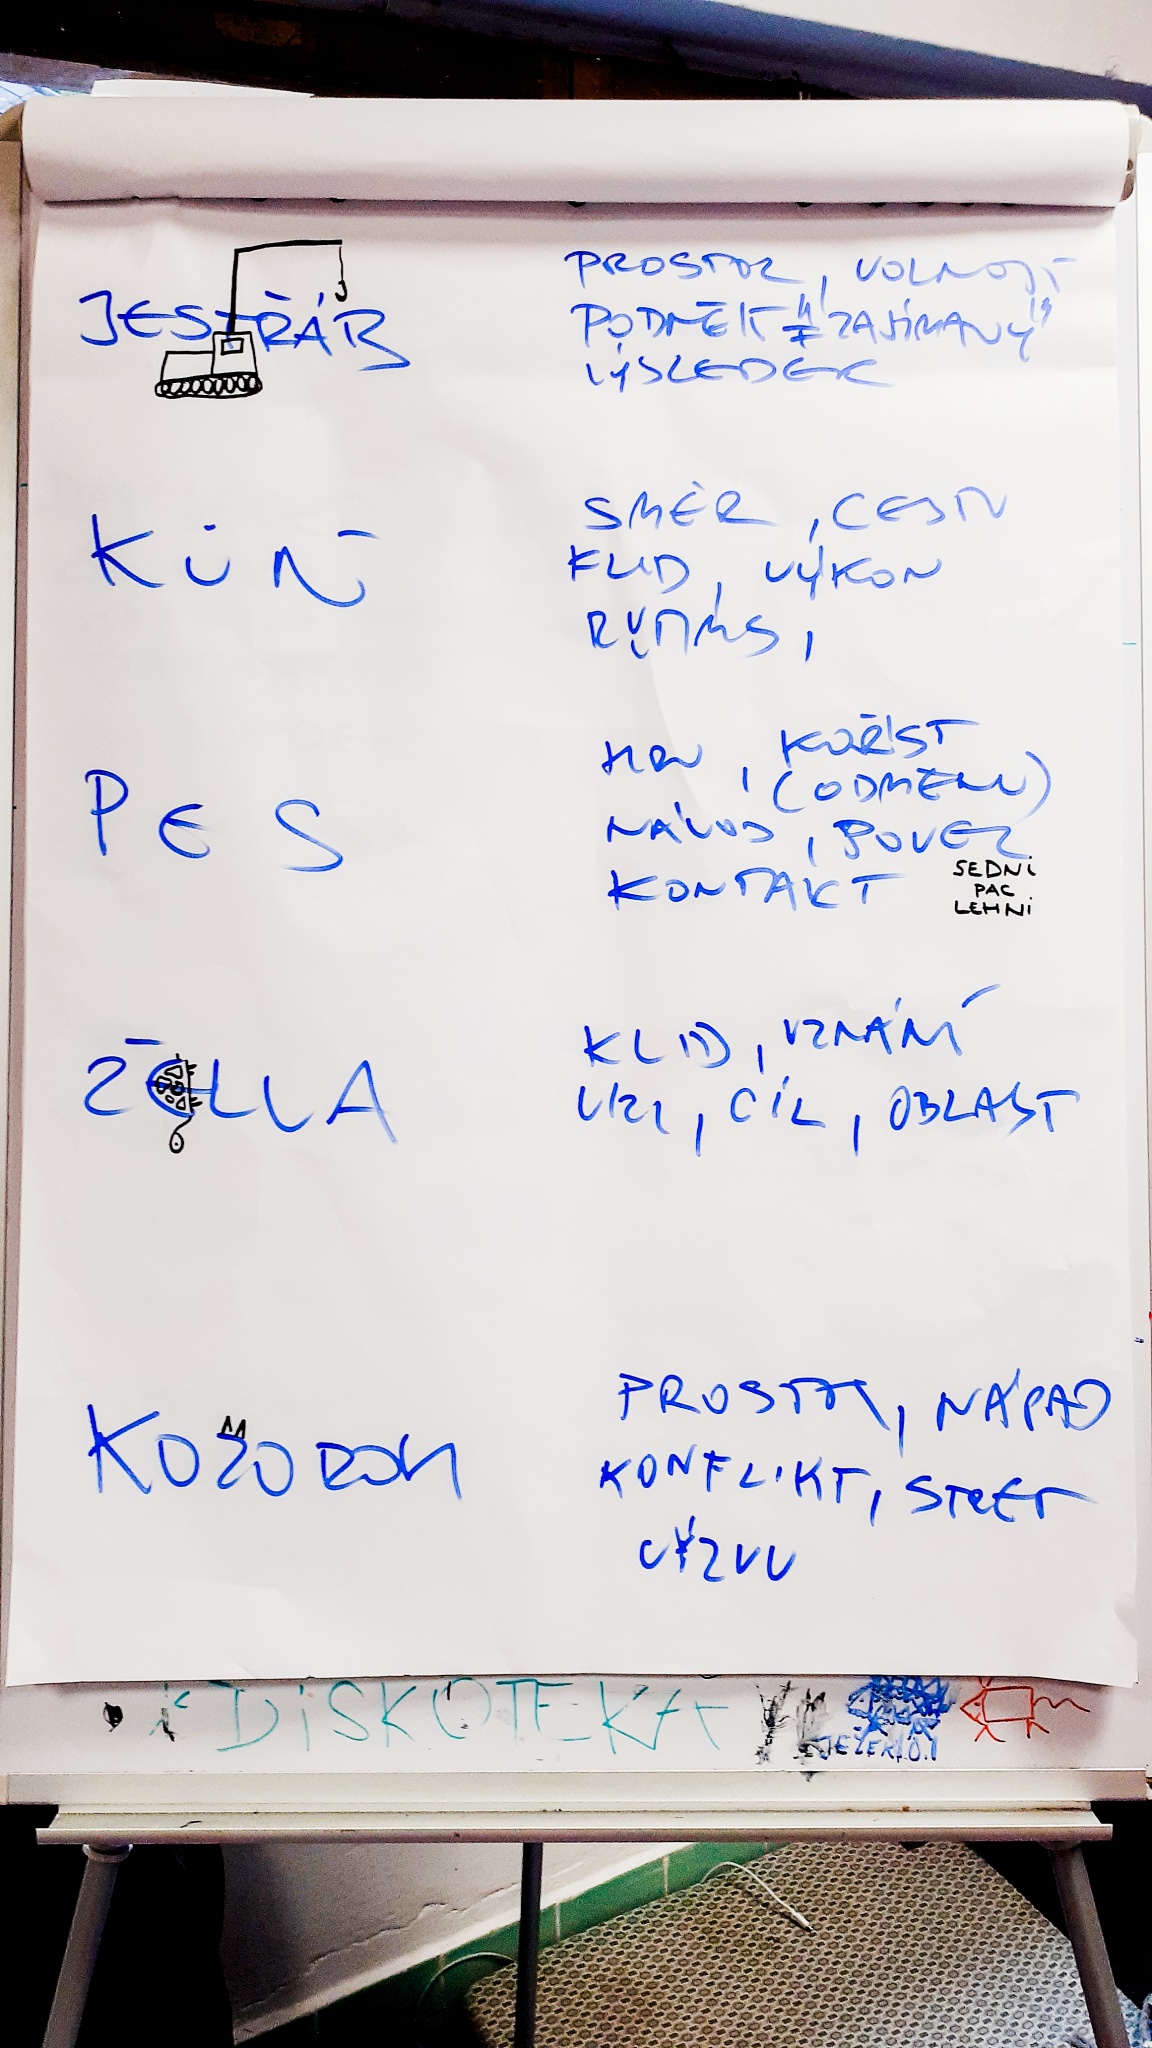 JESTŘÁB
PROSTOR, VOLNOST
PODNĚT "ZAJÍMAVÝ"
VÝSLEDEK
KŮŇ
SMĚR, CESTU
KLID, VÝKON
RYTMUS,
PES
HRU, KOŘIST
(ODMĚNU)
NÁVOD, POVEL
KONTAKT
SEDNi
PAC
LEHNi
ŽELVA
KLID, UZNÁNÍ
VIZI, CÍL, OBLAST
KOZOROH
PROSTOR, NÁPAD
KONFLIKT, STŘET
VÝZVU
DiSKOTEKA